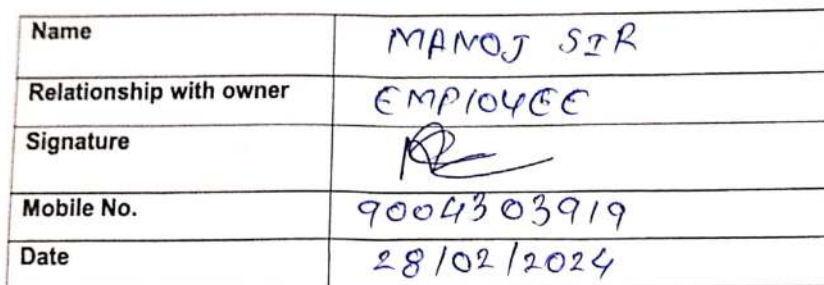 Name MANOJ SIR
Relationship with owner EMPlOYEE
Signature
Mobile No. 9004303919
Date 28/02/2024